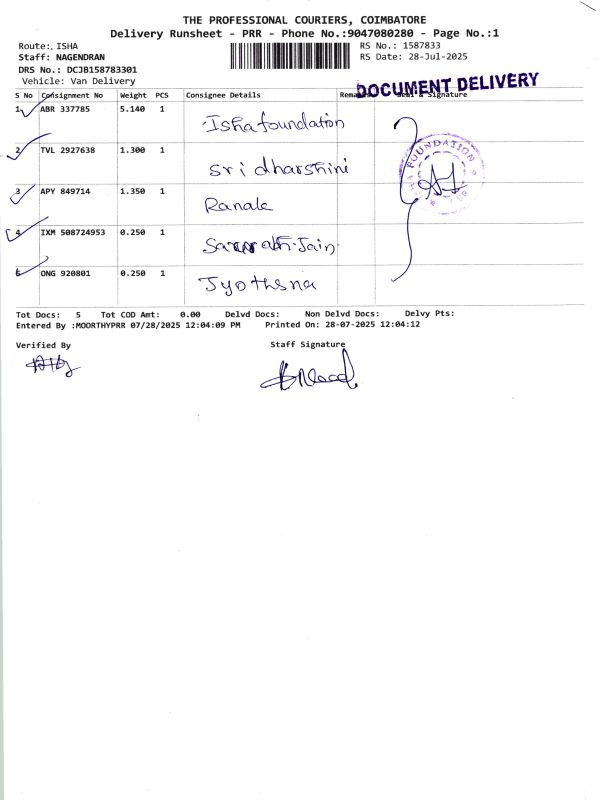 THE PROFESSIONAL COURIERS, COIMBATORE
Delivery Runsheet - PRR - Phone No.:9047080280 - Page No.:1
Route: ISHA
RS No.: 1587833
Staff: NAGENDRAN
RS Date: 28-Jul-2025
DRS No.: DCJB158783301
Vehicle: Van Delivery
DOCUMENT DELIVERY
S No Consignment No Weight PCS Consignee Details Signature
1 ABR 337785 5.140 1 Isha foundation
2 TVL 2927638 1.300 1 Sri dharshini
FOUNDATION
3 APY 849714 1.350 1 Ranak
4 IXM 508724953 0.250 1 Jain
5 ONG 920801 0.250 1 Jyothsna
Tot Docs: 5 Tot COD Amt: 0.00 Delvd Docs: Non Delvd Docs: Delvy Pts:
Entered By :MOORTHYPRR 07/28/2025 12:04:09 PM Printed On: 28-07-2025 12:04:12
Verified By Staff Signature